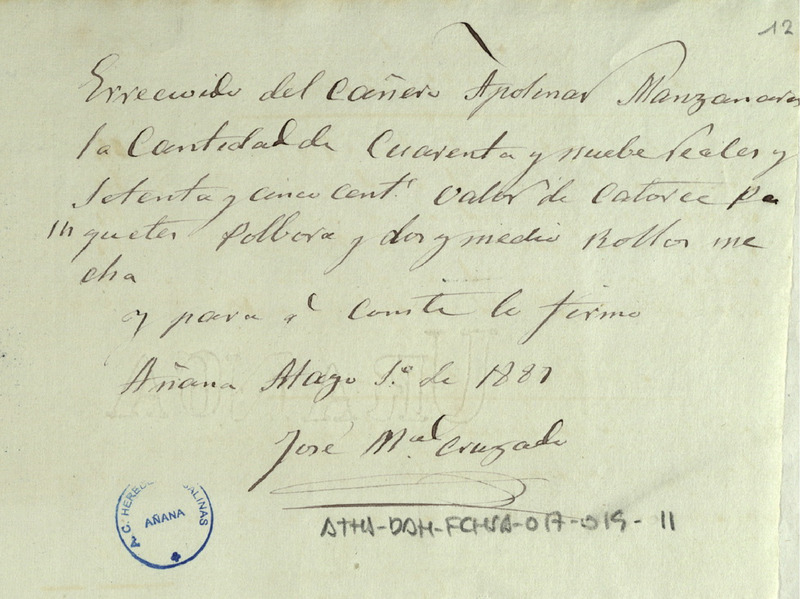 12
Errecivido del Cañero Apolinar Manzanares
la Cantidad de Cuarenta y nuebe reales y
Setenta y cinco cent.s valor de Catorce Pa
quetes Polbora y dos y medio Rollos me
cha
y para q.e Conste lo firmo
Añana Mayo 1.º de 1881
José M.el Cruzado
A.C. HERED SALINAS
AÑANA
ATHA-DAH-FCHVA-017-019-11